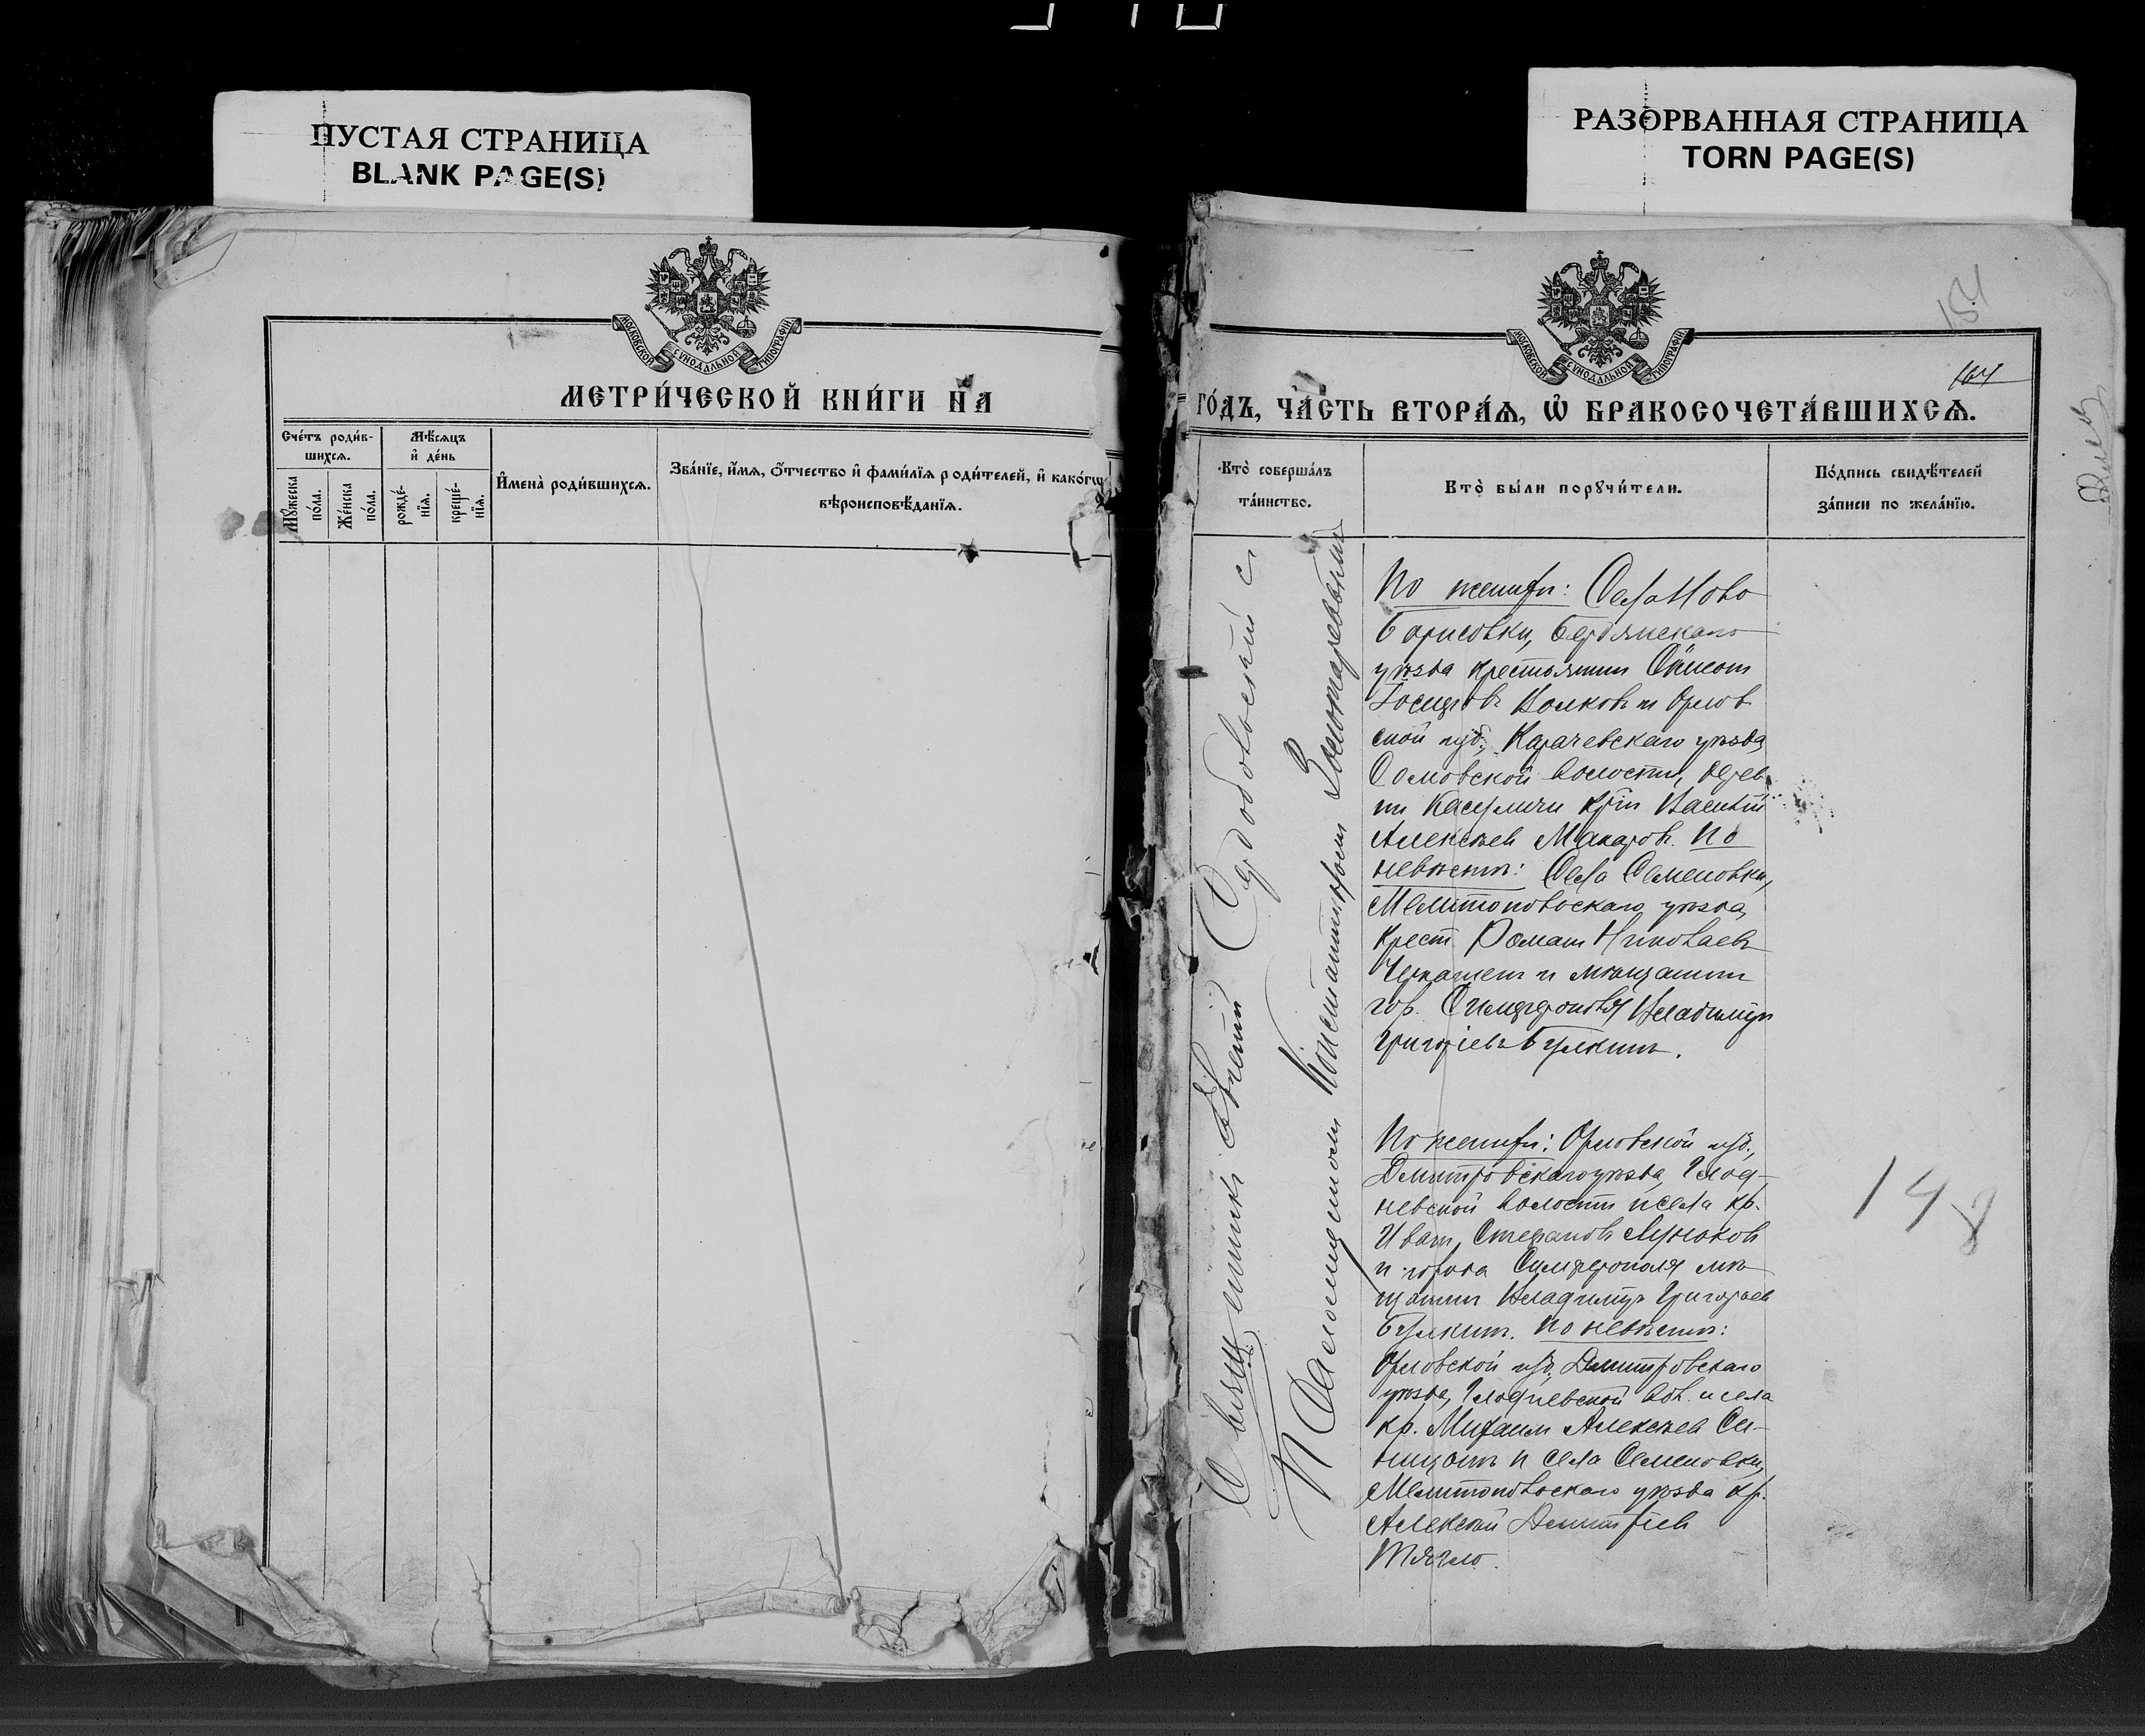 ПУСТАЯ СТРАНИЦА
BLANK PAGE(S)
РАЗОРВАННАЯ СТРАНИЦА
TORN PAGE(S)
МОСКОВСКОЙ СѴНОДАЛЬНОЙ ТИПОГРАФІИ
МЕТРИ́ЧЕСКОЙ КНИ́ГИ НА
Сче́тъ роди́в-
шихсѧ.
Мѣ́сѧцъ
и҆ де́нь
И҆мена̀ роди́вшихсѧ.
Зва́нїе, и҆́мѧ, ѻ҆́тчество и҆ фами́лїѧ роди́телей, и҆ како́гѡ
вѣроисповѣ́данїѧ.
Мꙋ́жеска
по́ла.
Же́нска
по́ла.
рожде́-
нїѧ.
креще́-
нїѧ.
МОСКОВСКОЙ СѴНОДАЛЬНОЙ ТИПОГРАФІИ
151
164
ГО́ДЪ, ЧА́СТЬ ВТОРА́Ѧ, Ѡ҆ БРАКОСОЧЕТА́ВШИХСѦ.
Кто̀ соверша́лъ
та́инство.
Кто̀ бы́ли порꙋчи́тели.
По́дпись свидѣ́телей
за́писи по жела́нїю.
Священникъ Евгений Сердобольский с
Псаломщикомъ Константиномъ
По женихѣ: Села Ново
Борисовки, Бердянскаго
уѣзда крестьянинъ Симеонъ
Волковъ и Орлов
ской губ., Карачевскаго уѣзда,
волости, дерев
ни кр-нъ Василій
Алексѣевъ Макаровъ. По
невѣстѣ: Села Семеновки,
Мелитопольскаго уѣзда,
Крест. Романъ Николаевъ
и мѣщанинъ
гор. Симферополя Владиміръ
Григорьевъ Булкинъ.
По женихѣ: Орловской губ.,
Дмитровскаго уѣзда, Глод-
невской волости и села кр.
Иванъ Стефановъ
и города Симферополя мѣ
щанинъ Владиміръ Григорьевъ
Булкинъ. По невѣстѣ:
Орловской губ. Дмитровскаго
уѣзда, Глодневской вол. и села
кр. Михаилъ Алексѣевъ Си-
и села Семеновки,
Мелитопольскаго уѣзда кр.
Алексѣй Димитріевъ
Тягло.
148